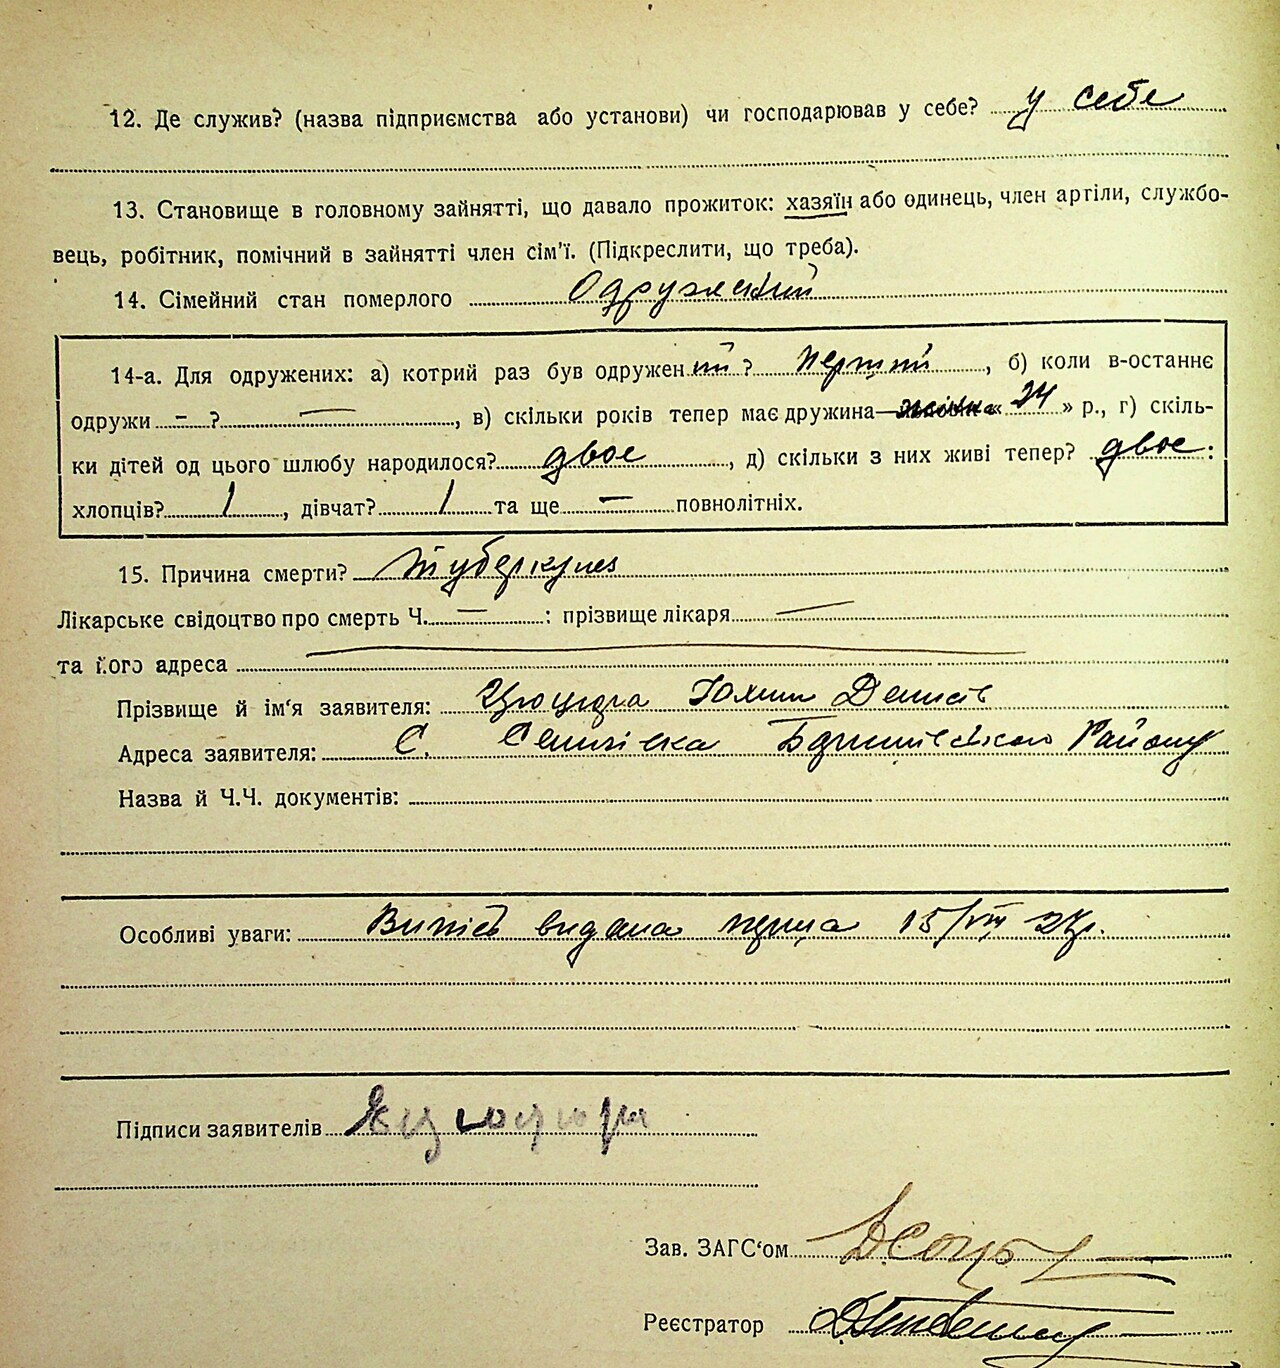 12. Де служив? (назва підприємства або установи) чи господарював у себе? у себе
13. Становище в головному зайнятті, що давало прожиток: хазяїн або одинець, член артіли, службо-
вець, робітник, помічний в зайнятті член сім'ї. (Підкреслити, що треба).
14. Сімейний стан померлого Одружений
14-а. Для одружених: а) котрий раз був одружений? перший, б) коли в-останнє
одружи - ? —, в) скільки років тепер має дружина «24» р., г) скіль-
ки дітей од цього шлюбу народилося? двое, д) скільки з них живі тепер? двое:
хлопців? 1, дівчат? 1 та ще — повнолітніх.
15. Причина смерти? туберкулез
Лікарське свідоцтво про смерть Ч. — : прізвище лікаря —
та його адреса —
Прізвище й ім'я заявителя: Цюцюра Юхим Денисів
Адреса заявителя: С. Району
Назва й Ч.Ч. документів:
Особливі уваги: Випись видана перша 15/VIII 27р.
Підписи заявителів
Зав. ЗАГС'ом
Реєстратор